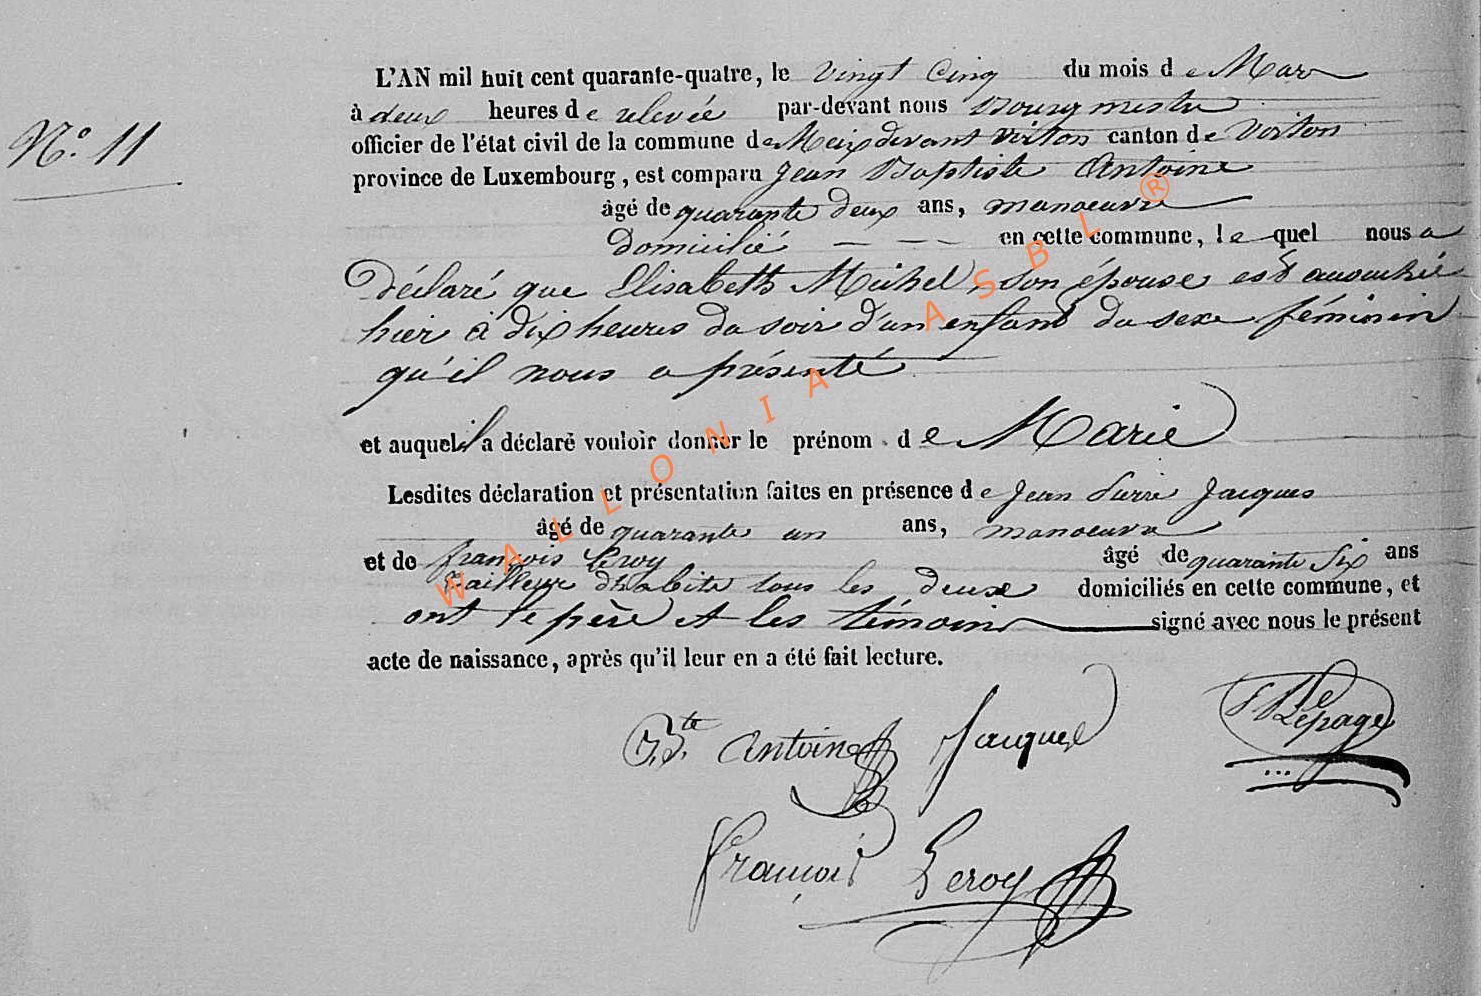 N.° 11
L'AN mil huit cent quarante-quatre, le vingt cinq du mois de Mars
à deux heures de relevée par-devant nous Bourgmestre
officier de l'état civil de la commune de Meix devant Virton canton de Virton
province de Luxembourg, est comparu Jean Baptiste Antoine
âgé de quarante deux ans, manoeuvre
domicilié — — — en cette commune, lequel nous a
déclaré que Elisabeth Michel, son épouse est accouchée
hier à dix heures du soir d'un enfant du sexe féminin
qu'il nous a présenté
et auquel il a déclaré vouloir donner le prénom de Marie
Lesdites déclaration et présentation faites en présence de Jean Pierre Jacques
âgé de quarante un ans, manoeuvre
et de françois Leroy âgé de quarante six ans
tailleur d'habits tous les deux domiciliés en cette commune, et
ont le père et les témoins signé avec nous le présent
acte de naissance, après qu'il leur en a été fait lecture.
J.Bte Antoine Jacques Lepage
François Leroy
WALLONIA ASBL ®